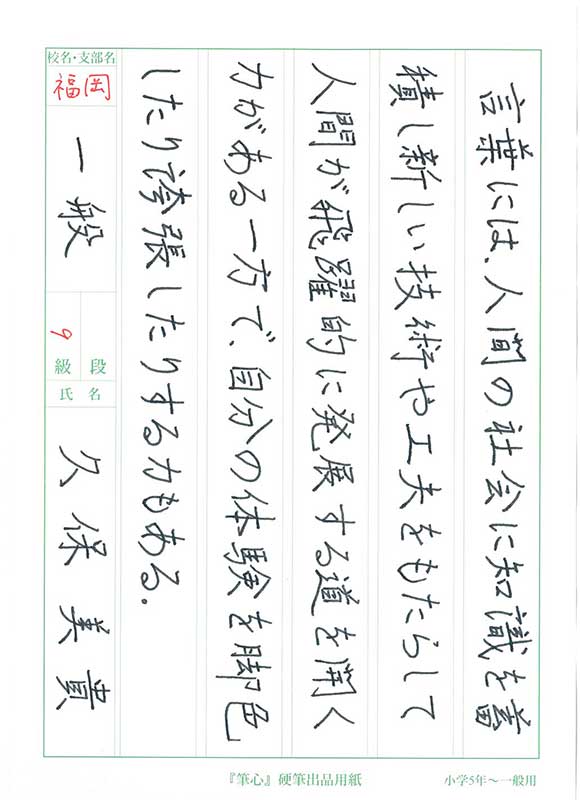 言葉には、人間の社会に知識を蓄
積し新しい技術や工夫をもたらして
人間が飛躍的に発展する道を開く
力がある一方で、自分の体験を脚色
したり誇張したりする力もある.
校名・支部名
福岡
一般
9
段
級
氏名
久保美貴
『筆心』硬筆出品用紙
小学5年～一般用